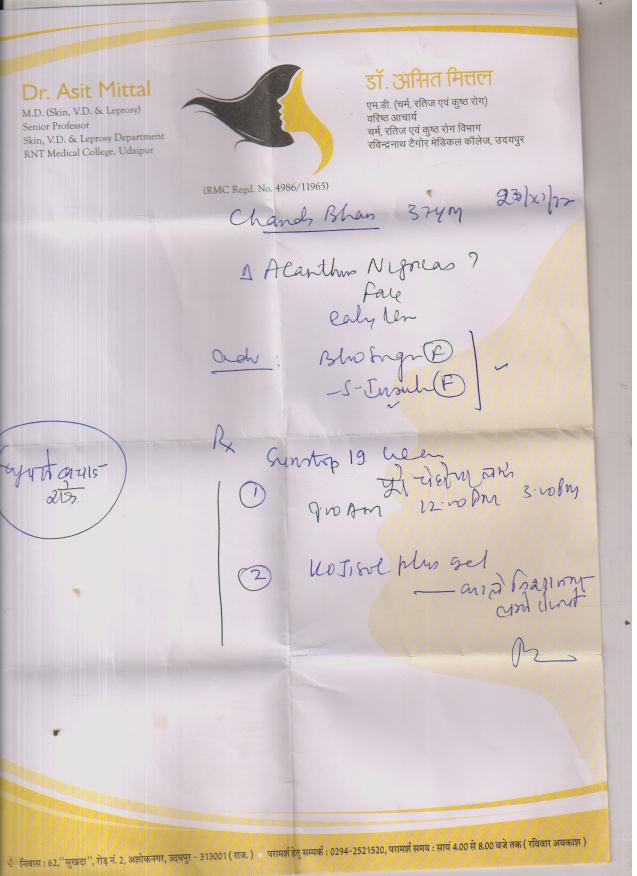 Dr. Asit Mittal
M.D. (Skin, V.D. & Leprosy)
Senior Professor
Skin, V.D. & Leprosy Department
RNT Medical College, Udaipur
डॉ. असित मित्तल
एम.डी. (चर्म, रतिज एवं कुष्ठ रोग)
वरिष्ठ आचार्य
चर्म, रतिज एवं कुष्ठ रोग विभाग
रविन्द्रनाथ टैगोर मेडिकल कॉलेज, उदयपुर
(RMC Regd. No. 4986/11965)
Bhan 37yM
?
Face
Adv :
F
S-Insulin F
Rx
Sunstop 19
1
9.00 AM 12.00 PM 3.00 PM
2 Kojisol plus gel
निवास : 62,"सुखदा", रोड़ नं. 2, अशोकनगर, उदयपुर - 313001 ( राज. ) परामर्श हेतु सम्पर्क : 0294-2521520, परामर्श समय : सायं 4.00 से 8.00 बजे तक ( रविवार अवकाश )